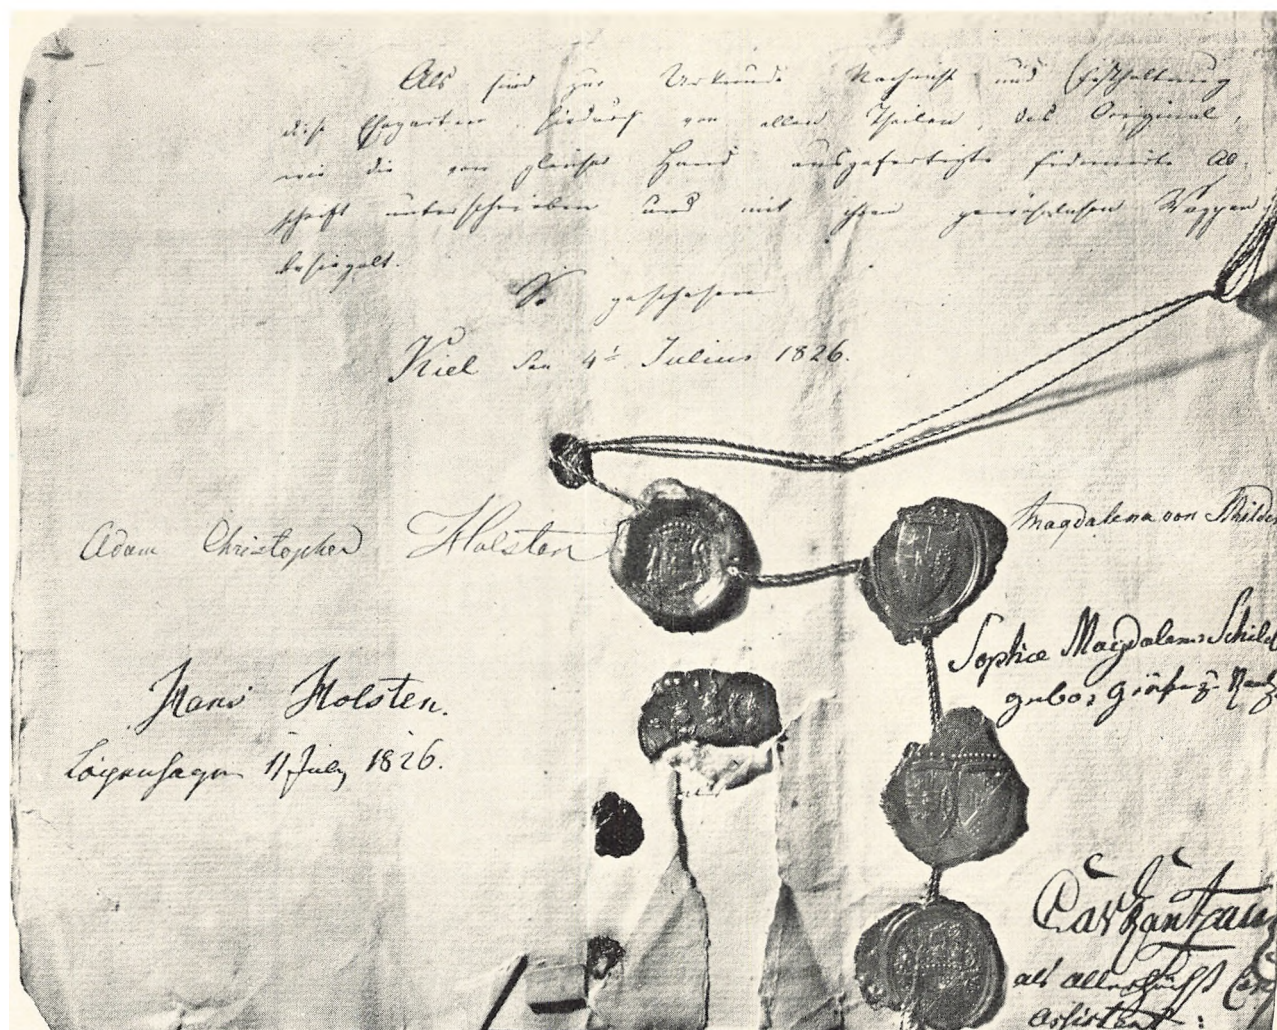 Als sind zur Urkunde Nachricht und Festhaltung
diese Ehepacten hiedurch von allen Theilen, das Original,
wie die von gleicher Hand ausgefertigte Ab-
schrift unterschrieben und mit ihren gewöhnlichen Wappen
besiegelt.
So geschehen
Kiel den 4t Julius 1826.
Adam Christopher Holsten
Magdalena von Schilde
Sophie Magdalena Schild
gebor Gräfin
Hans Holsten.
11 July 1826.
als allerhöchst
Assistent.